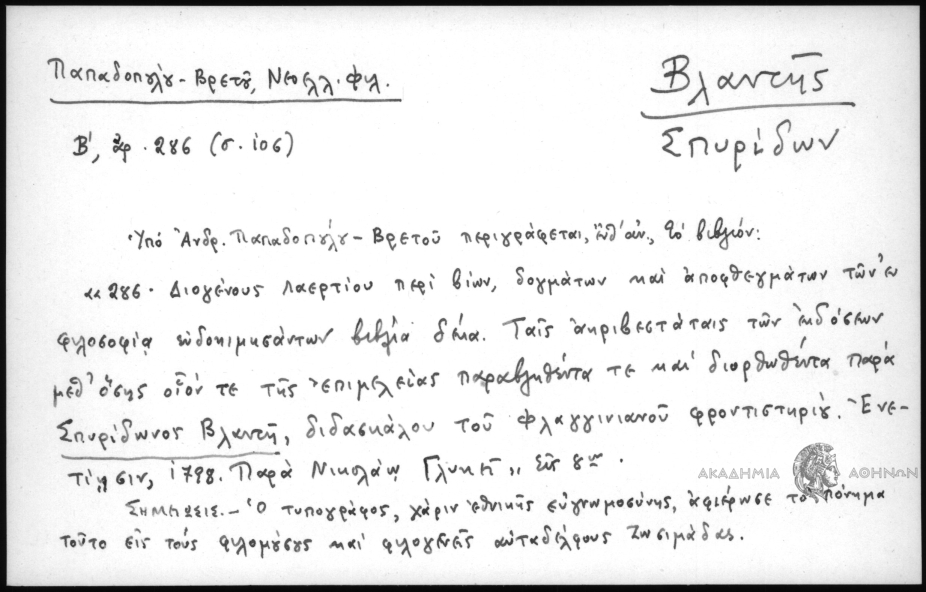 Παπαδοπούλου - Βρετοῦ, Νεοελλ. Φιλ.
Βλαντῆς
Σπυρίδων
Β', ἀρ. 286 (σ. 106)
Ὑπό Ἀνδρ. Παπαδοπούλου - Βρετοῦ περιγράφεται, ἔνθ' ἀν., τό βιβλίον:
«286. Διογένους Λαερτίου περί βίων, δογμάτων καί ἀποφθεγμάτων τῶν ἐν
φιλοσοφίᾳ εὐδοκιμησάντων βιβλία δέκα. Ταῖς ἀκριβεστάταις τῶν ἐκδόσεων
μεθ' ὅσης οἷόν τε τῆς ἐπιμελείας παραβληθέντα τε καί διορθωθέντα παρά
Σπυρίδωνος Βλαντῆ, διδασκάλου τοῦ Φλαγγινιανοῦ φροντιστηρίου. Ἐνε-
τίῃσιν, 1798. Παρά Νικολάῳ Γλυκεῖ,, εἰς 8ον.
ΑΚΑΔΗΜΙΑ ΑΘΗΝΩΝ
Σημείωσις.- Ὁ τυπογράφος, χάριν ἐθνικῆς εὐγνωμοσύνης, ἀφιέρωσε τό πόνημα
τοῦτο εἰς τούς φιλομούσους καί φιλογενεῖς αὐταδέλφους Ζωσιμάδας.